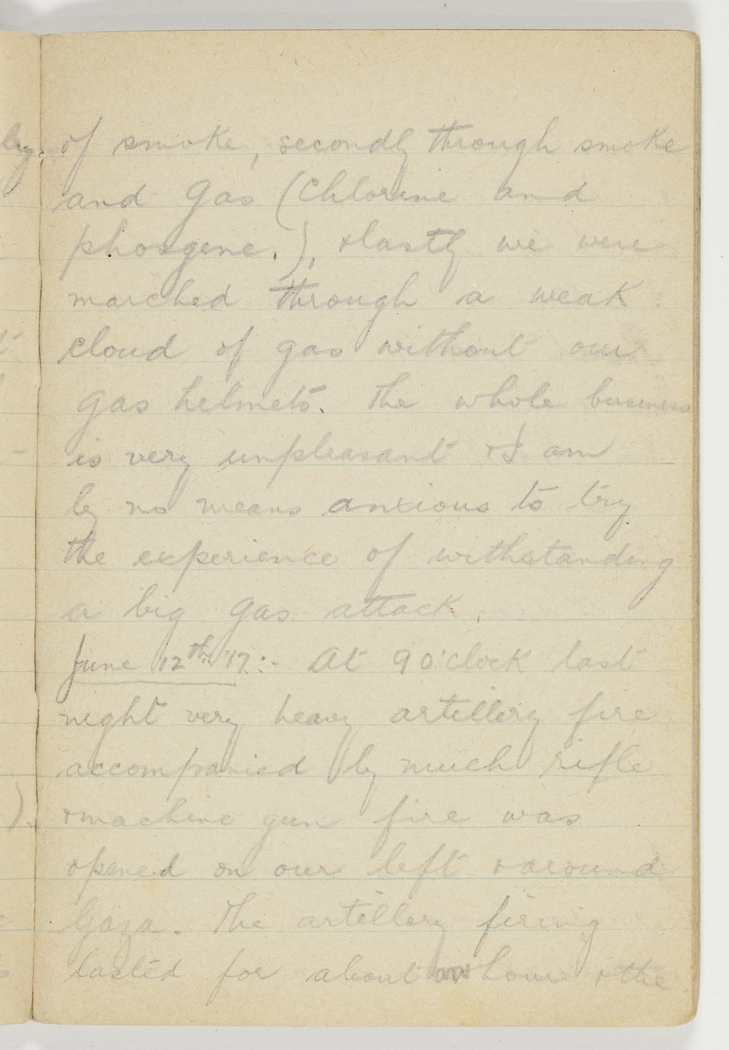 of smoke, secondly through smoke
and gas (Chlorine and
phosgene.), & lastly we were
marched through a weak
cloud of gas without our
gas helmets. The whole business
is very unpleasant & I am
by no means anxious to try
the experience of withstanding
a big gas attack.
June 12th '17:- At 9 o'clock last
night very heavy artillery fire
accompanied by much rifle
& machine gun fire was
opened on our left & around
Gaza. The artillery firing
lasted for about an hour & the